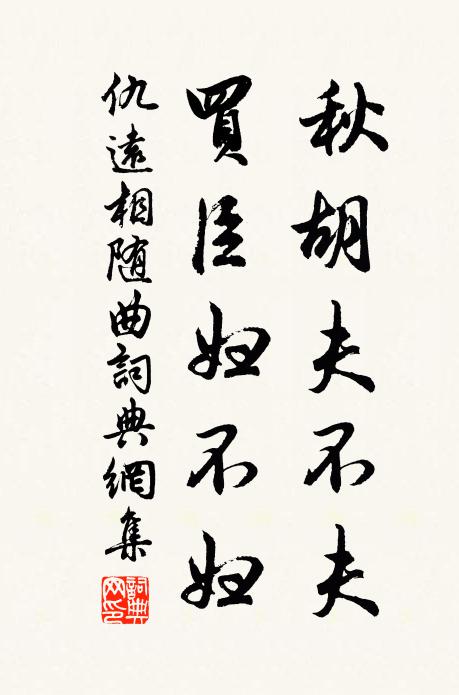 秋胡夫不夫
買臣妇不妇
仇遠相随曲詞典網集
詞典网印